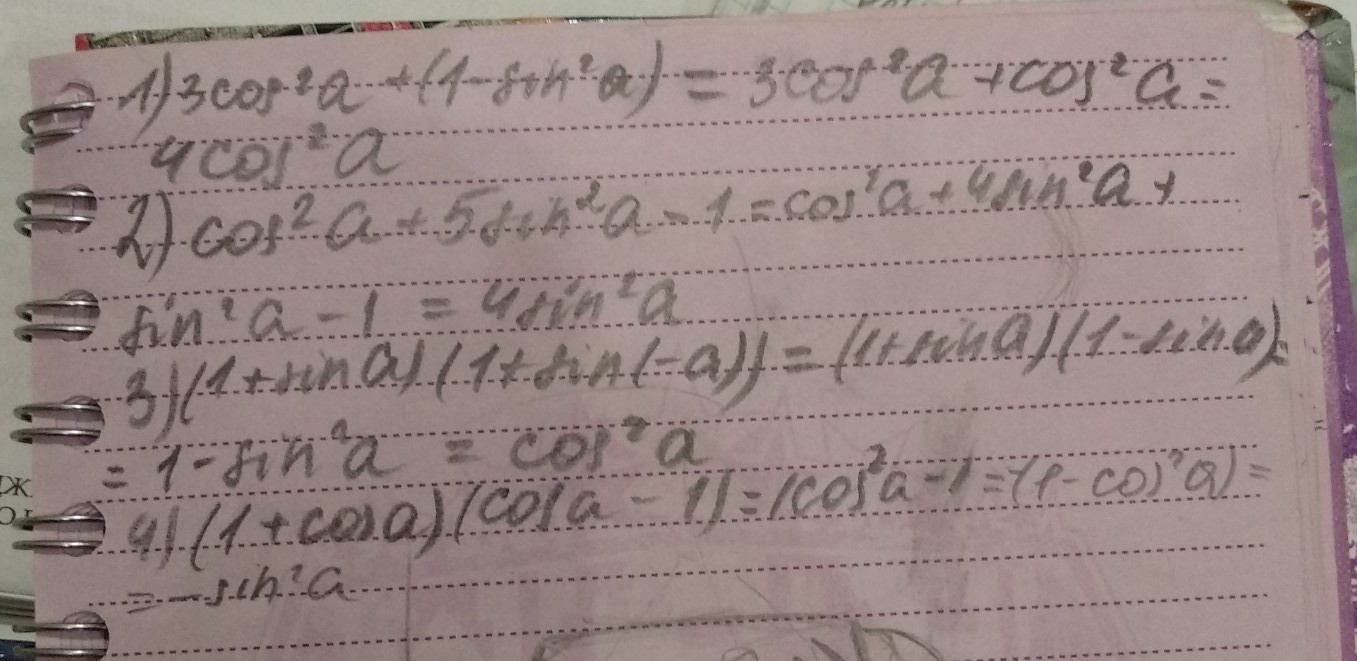 1) 3cos²a + (1-sin²a) = 3cos²a + cos²a =
4cos²a
2) cos²a + 5sin²a - 1 = cos²a + 4sin²a +
sin²a - 1 = 4sin²a
3) (1+sina)(1+sin(-a)) = (1+sina)(1-sina)=
= 1-sin²a = cos²a
4) (1+cosa)(cosa - 1) = (cos²a - 1 = -(1-cos²a) =
= -sin²a